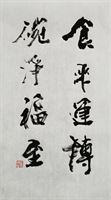 食平運轉
碗淨福至